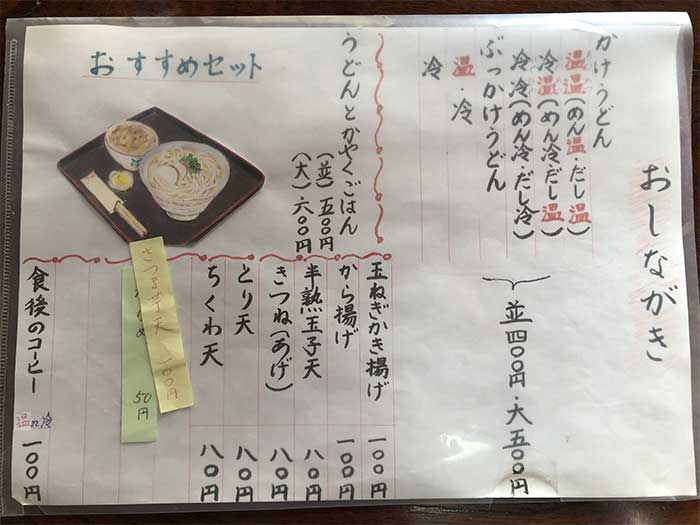 おしながき
かけうどん
温温(めん温・だし温)
冷温(めん冷・だし温)
冷冷(めん冷・だし冷)
ぶっかけうどん
温・冷
冷
並四〇〇円・大五〇〇円
おすすめセット
うどんとかやくごはん
(並)五〇〇円
(大)六〇〇円
玉ねぎかき揚げ 一〇〇円
から揚げ 一〇〇円
半熟玉子天 八〇円
きつね(あげ) 八〇円
とり天 八〇円
ちくわ天 八〇円
さつま芋天 一〇〇円
50円
食後のコーヒー 温or冷 一〇〇円